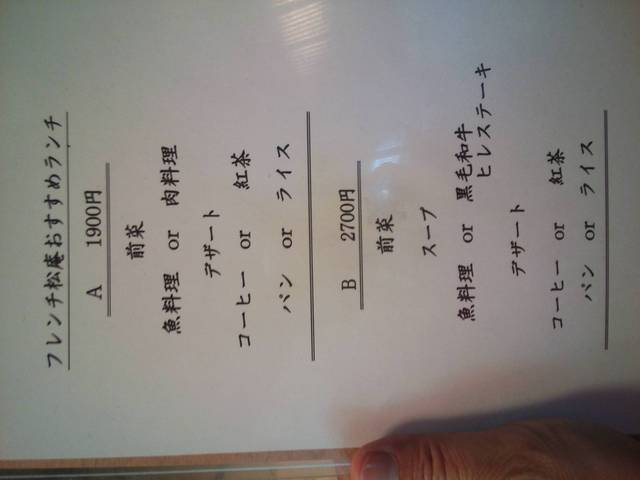 フレンチ松庵おすすめランチ
A 1900円
前菜
魚料理 or 肉料理
デザート
コーヒー or 紅茶
パン or ライス
B 2700円
前菜
スープ
魚料理 or 黒毛和牛
ヒレステーキ
デザート
コーヒー or 紅茶
パン or ライス